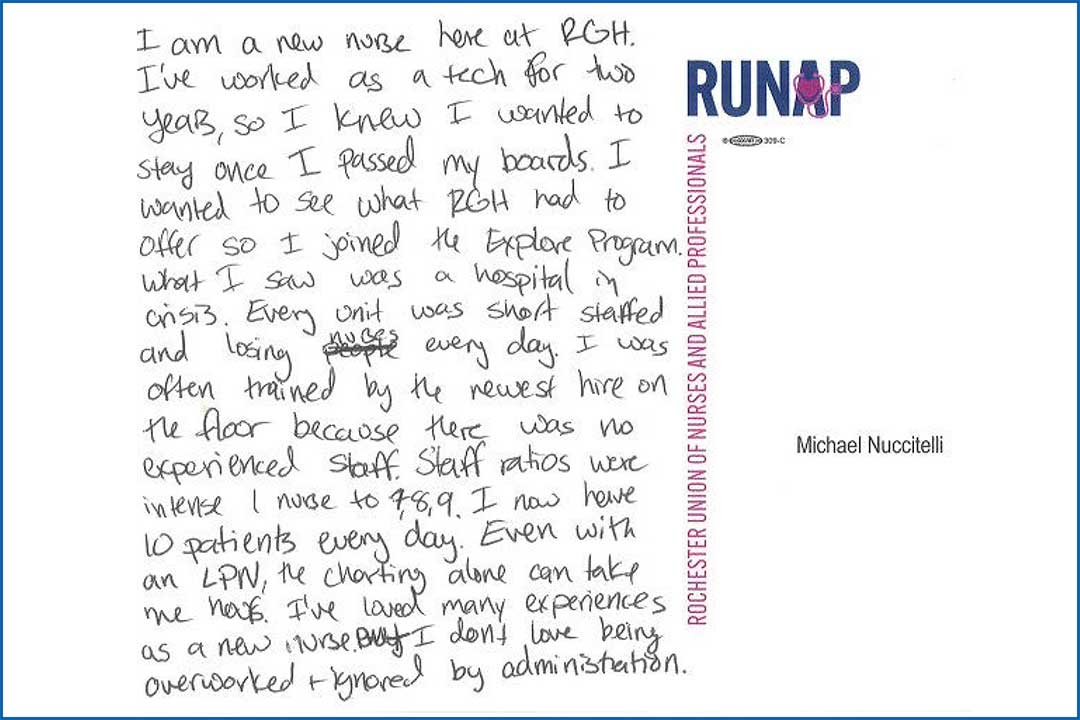 I am a new nurse here at RGH.
I've worked as a tech for two
years, so I knew I wanted to
stay once I passed my boards. I
wanted to see what RGH had to
offer so I joined the Explore Program.
What I saw was a hospital in
crisis. Every unit was short staffed
and losing nurses every day. I was
often trained by the newest hire on
the floor because there was no
experienced staff. Staff ratios were
intense 1 nurse to 7,8,9. I now have
10 patients every day. Even with
an LPN, the charting alone can take
me hours. I've loved many experiences
as a new nurse. But I dont love being
overworked + ignored by administration.
RUNAP
309-C
ROCHESTER UNION OF NURSES AND ALLIED PROFESSIONALS
Michael Nuccitelli